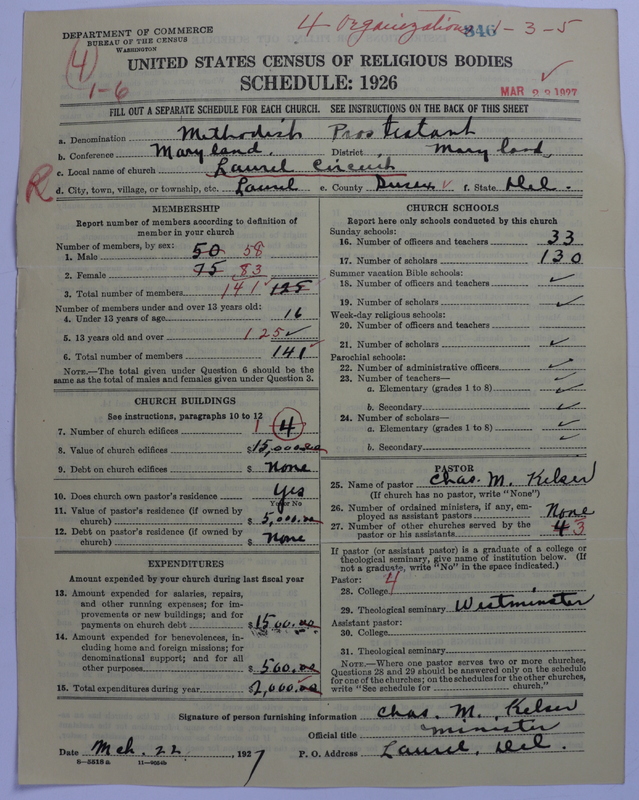 DEPARTMENT OF COMMERCE
BUREAU OF THE CENSUS
WASHINGTON
4 Organizations 846 1-3-5
4
1-6
UNITED STATES CENSUS OF RELIGIOUS BODIES
SCHEDULE: 1926
MAR 22 1927
FILL OUT A SEPARATE SCHEDULE FOR EACH CHURCH. SEE INSTRUCTIONS ON THE BACK OF THIS SHEET
a. Denomination Methodist Protestant
b. Conference Maryland. District Maryland
c. Local name of church Laurel Circuit
R
d. City, town, village, or township, etc. Laurel e. County Sussex f. State Del.
MEMBERSHIP
Report number of members according to definition of member in your church
Number of members, by sex:
1. Male 50 58
2. Female 75 83
3. Total number of members 141 125
Number of members under and over 13 years old:
4. Under 13 years of age 16
5. 13 years old and over 125 ✓
6. Total number of members 141
NOTE.—The total given under Question 6 should be the same as the total of males and females given under Question 3.
CHURCH BUILDINGS
See instructions, paragraphs 10 to 12
7. Number of church edifices 1 4
8. Value of church edifices $15,000.00
9. Debt on church edifices $ None
10. Does church own pastor's residence Yes
Yes or No
11. Value of pastor's residence (if owned by church) $ 5,000.00
12. Debt on pastor's residence (if owned by church) $ None
EXPENDITURES
Amount expended by your church during last fiscal year
13. Amount expended for salaries, repairs, and other running expenses; for improvements or new buildings; and for payments on church debt $1500.00
14. Amount expended for benevolences, including home and foreign missions; for denominational support; and for all other purposes $ 500.00
15. Total expenditures during year $2,000.00
CHURCH SCHOOLS
Report here only schools conducted by this church
Sunday schools:
16. Number of officers and teachers 33
17. Number of scholars 130
Summer vacation Bible schools:
18. Number of officers and teachers ✓
19. Number of scholars ✓
Week-day religious schools:
20. Number of officers and teachers
21. Number of scholars ✓
Parochial schools:
22. Number of administrative officers ✓
23. Number of teachers—
a. Elementary (grades 1 to 8) ✓
b. Secondary ✓
24. Number of scholars—
a. Elementary (grades 1 to 8) ✓
b. Secondary ✓
PASTOR
25. Name of pastor Chas. M. Kelser
(If church has no pastor, write "None")
26. Number of ordained ministers, if any, employed as assistant pastors None
27. Number of other churches served by the pastor or his assistants 4 3
If pastor (or assistant pastor) is a graduate of a college or theological seminary, give name of institution below. (If not a graduate, write "No" in the space indicated.)
Pastor: 4
28. College
29. Theological seminary Westminster
Assistant pastor:
30. College
31. Theological seminary
NOTE.—Where one pastor serves two or more churches, Questions 28 and 29 should be answered only on the schedule for one of the churches; on the schedules for the other churches, write "See schedule for ________ church."
Signature of person furnishing information Chas. M. Kelser
Official title minister
Date Mch. 22, 1927 P. O. Address Laurel, Del.